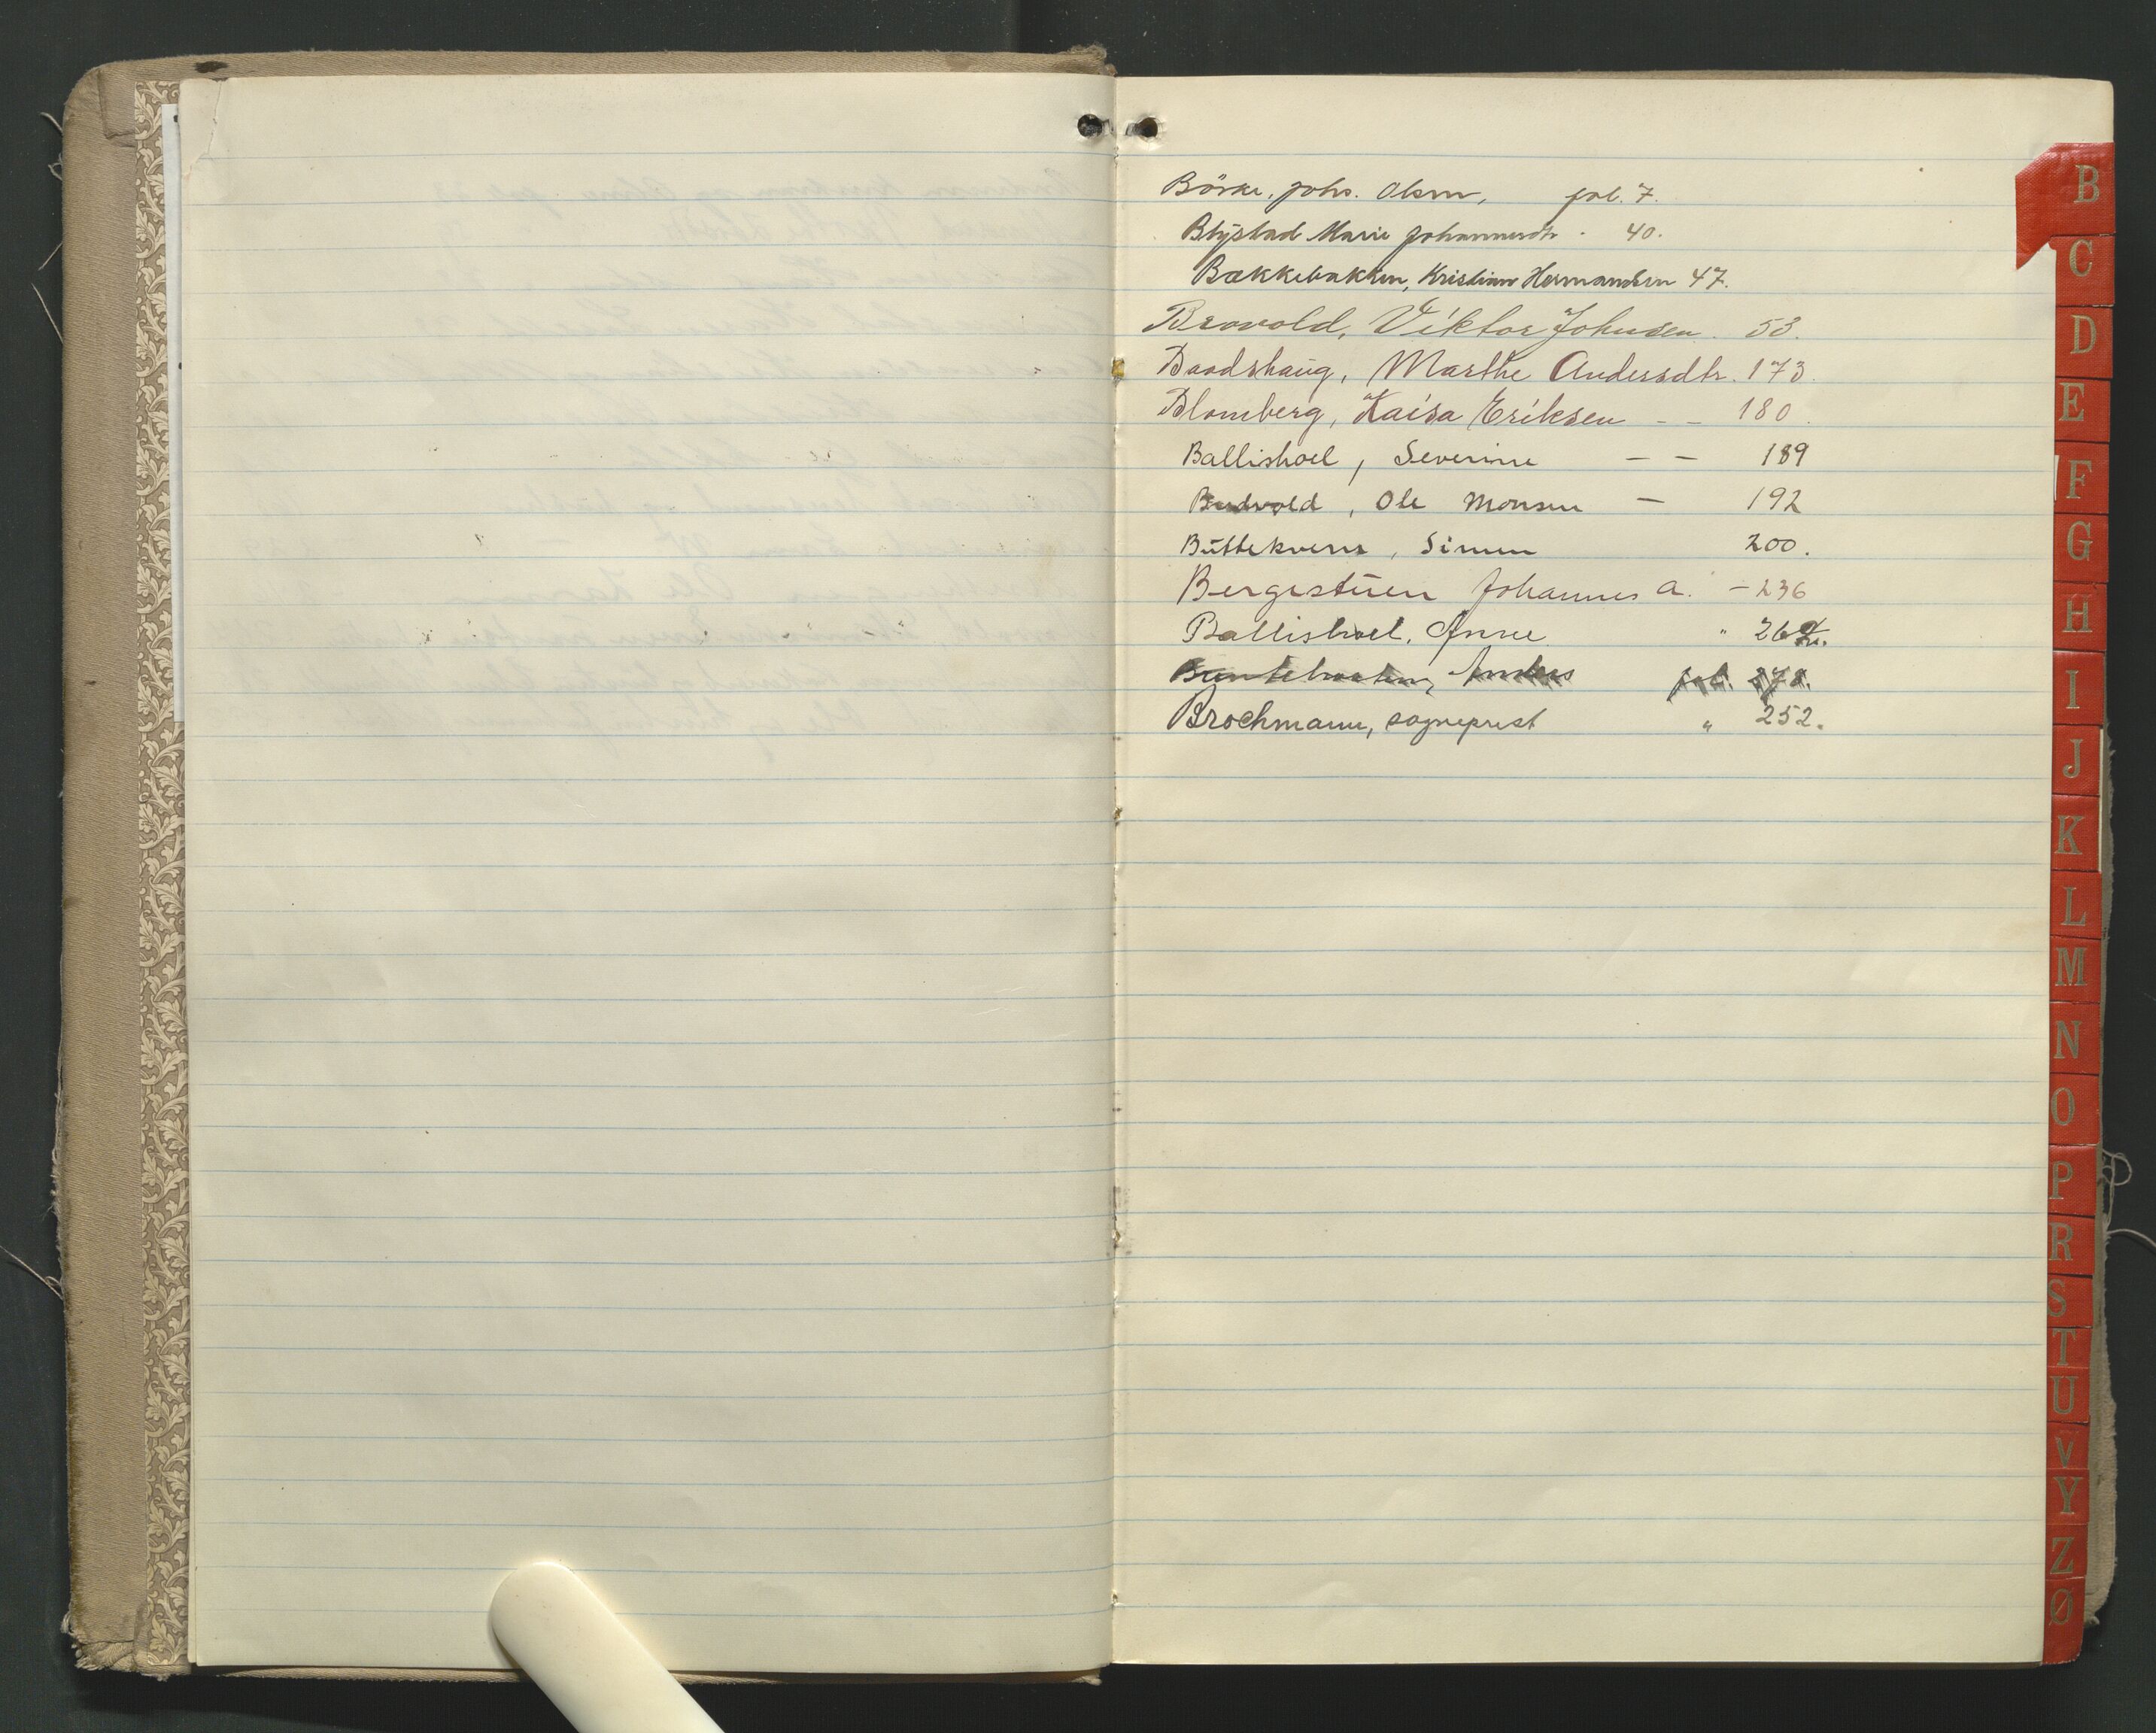 Börke, Johs. Olsen, fol. 7.
Blystad Marie Johannesdtr. 40.
Bækkebakken, Kristian Hermansen 47.
Brovold, Viktor Johnsen. 53.
Baadshaug, Marthe Andersdtr. 173.
Blomberg, Kaisa Eriksen - - 180.
Ballishoel, Severine - - 189
Ole Monsen - 192
Büttekvern, Simen 200.
Bergestüen Johannes A. - 236
Ballishoel, Anne " 26
Anders fol. 278.
Brochmann, sogneprest " 252.
B
C
D
E
F
G
H
I
J
K
L
M
N
O
P
R
S
T
U
V
Y
Z
Ø